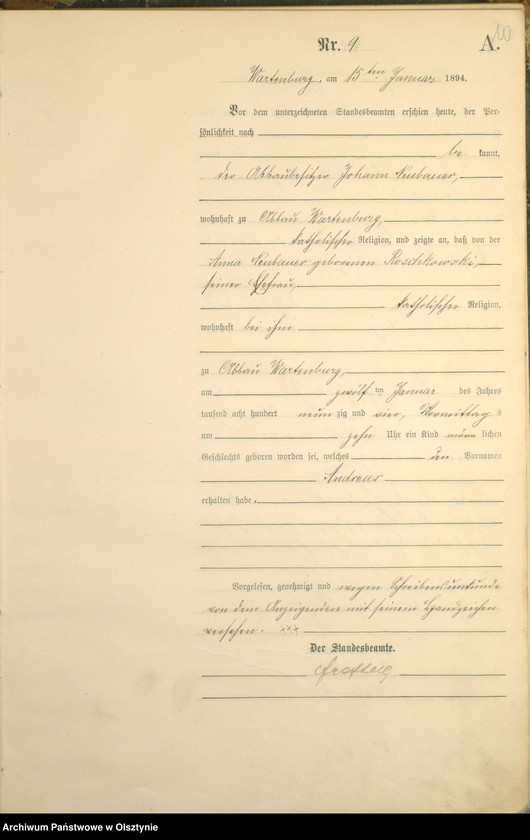 10
Nr. 9. A.
Wartenburg, am 15ten Januar 1894.
Vor dem unterzeichneten Standesbeamten erschien heute, der Per-
sönlichkeit nach
be kannt,
der Abbaubesitzer Johann Neubauer,
wohnhaft zu Abbau Wartenburg,
katholischer Religion, und zeigte an, daß von der
Anna Neubauer geborenen Roschkowski,
seiner Ehefrau,
katholischer Religion,
wohnhaft bei ihm
zu Abbau Wartenburg,
am zwölften Januar des Jahres
tausend acht hundert neun zig und vier, Vormittags
um zehn Uhr ein Kind männ lichen
Geschlechts geboren worden sei, welches den Vornamen
Andreas
erhalten habe.
Vorgelesen, genehmigt und wegen Schreibensunkunde
von dem Anzeigenden mit seinem Handzeichen
versehen. xxx
Der Standesbeamte.
Archiwum Państwowe w Olsztynie